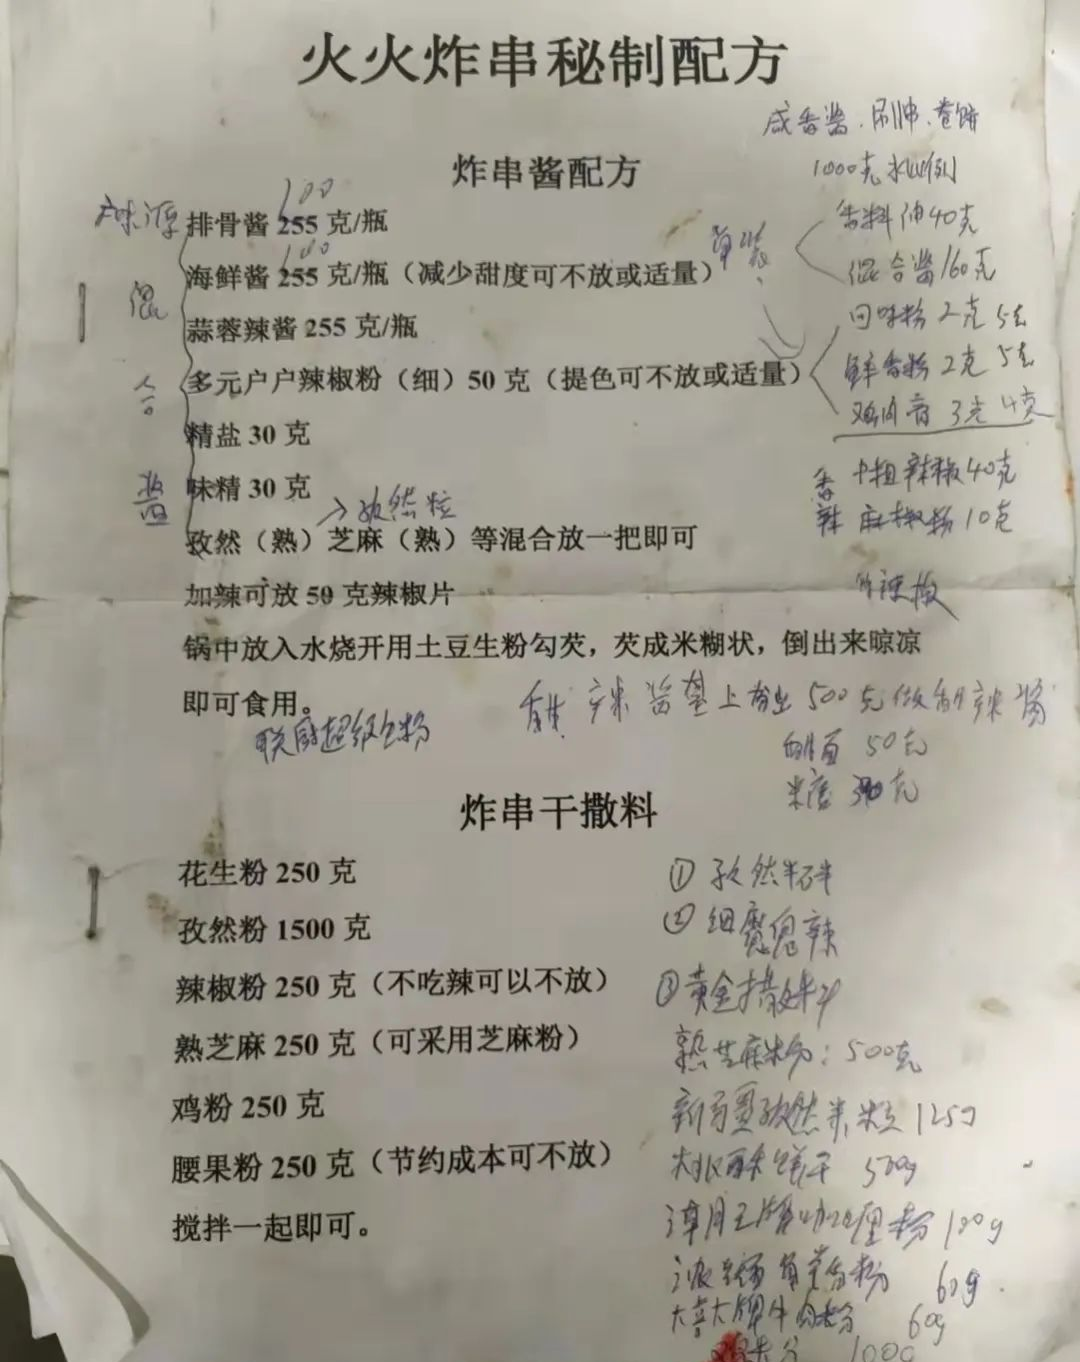 火火炸串秘制配方
咸香酱.刷串.卷饼
炸串酱配方
1000克水比例
100
味源
排骨酱 255 克/瓶
香料油40克
100
单
海鲜酱 255 克/瓶（减少甜度可不放或适量）
混合酱160克
混合酱
蒜蓉辣酱 255 克/瓶
回味粉 2克 5克
多元户户辣椒粉（细）50 克（提色可不放或适量）
鲜香粉 2克 5克
精盐 30 克
鸡肉膏 3克 4克
味精 30 克
香辣
中粗辣椒40克
孜然粒
麻椒粉10克
孜然（熟）芝麻（熟）等混合放一把即可
加辣可放 50 克辣椒片
辣椒
锅中放入水烧开用土豆生粉勾芡，芡成米糊状，倒出来晾凉
即可食用。
辣酱基上 500克做甜辣酱
联厨超级 粉
50克
炸串干撒料
花生粉 250 克
① 孜然
孜然粉 1500 克
② 细魔鬼辣
辣椒粉 250 克（不吃辣可以不放）
③ 黄金撒料
熟芝麻 250 克（可采用芝麻粉）
熟芝麻粉：500克
鸡粉 250 克
新疆孜然 粒 125g
腰果粉 250 克（节约成本可不放）
饼干 500g
搅拌一起即可。
咖喱粉 100g
粉 60g
大喜大牌牛肉粉 60g
1000